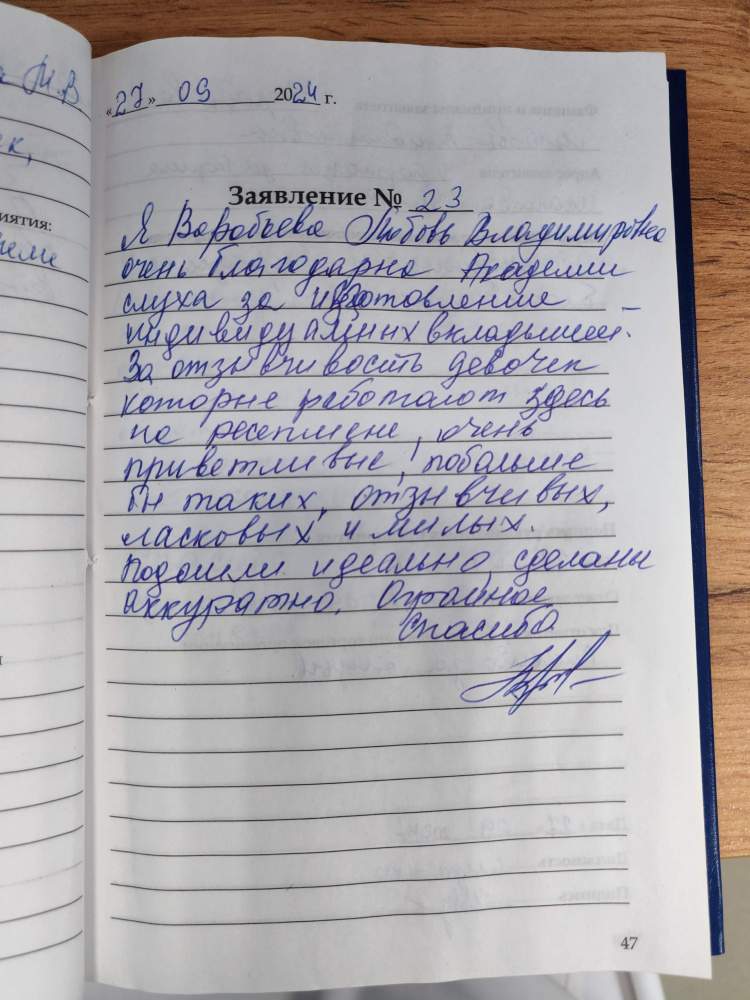 М.В
«27» 09 2024 г.
иятия:
Заявление № 23
Я Воробьева Любовь Владимировна
очень благодарна Академии
слуха за изготовление
индивидуальных вкладышей.
За отзывчивость девочек
которые работают здесь
на ресепшене, очень
приветливые, побольше
бы таких, отзывчивых,
ласковых и милых.
Подошли идеально, сделаны
аккуратно. Огромное
Спасибо
47